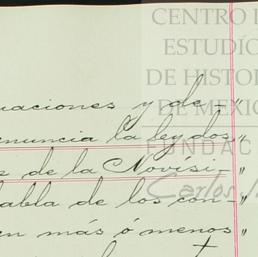 CENTRO
ESTUDIO
DE HISTO
DE MEXIC
FUNDAC
Carlos
uaciones y de-"
enuncia la ley dos"
de la Novísi-"
abla de los con-"
en más ó menos"